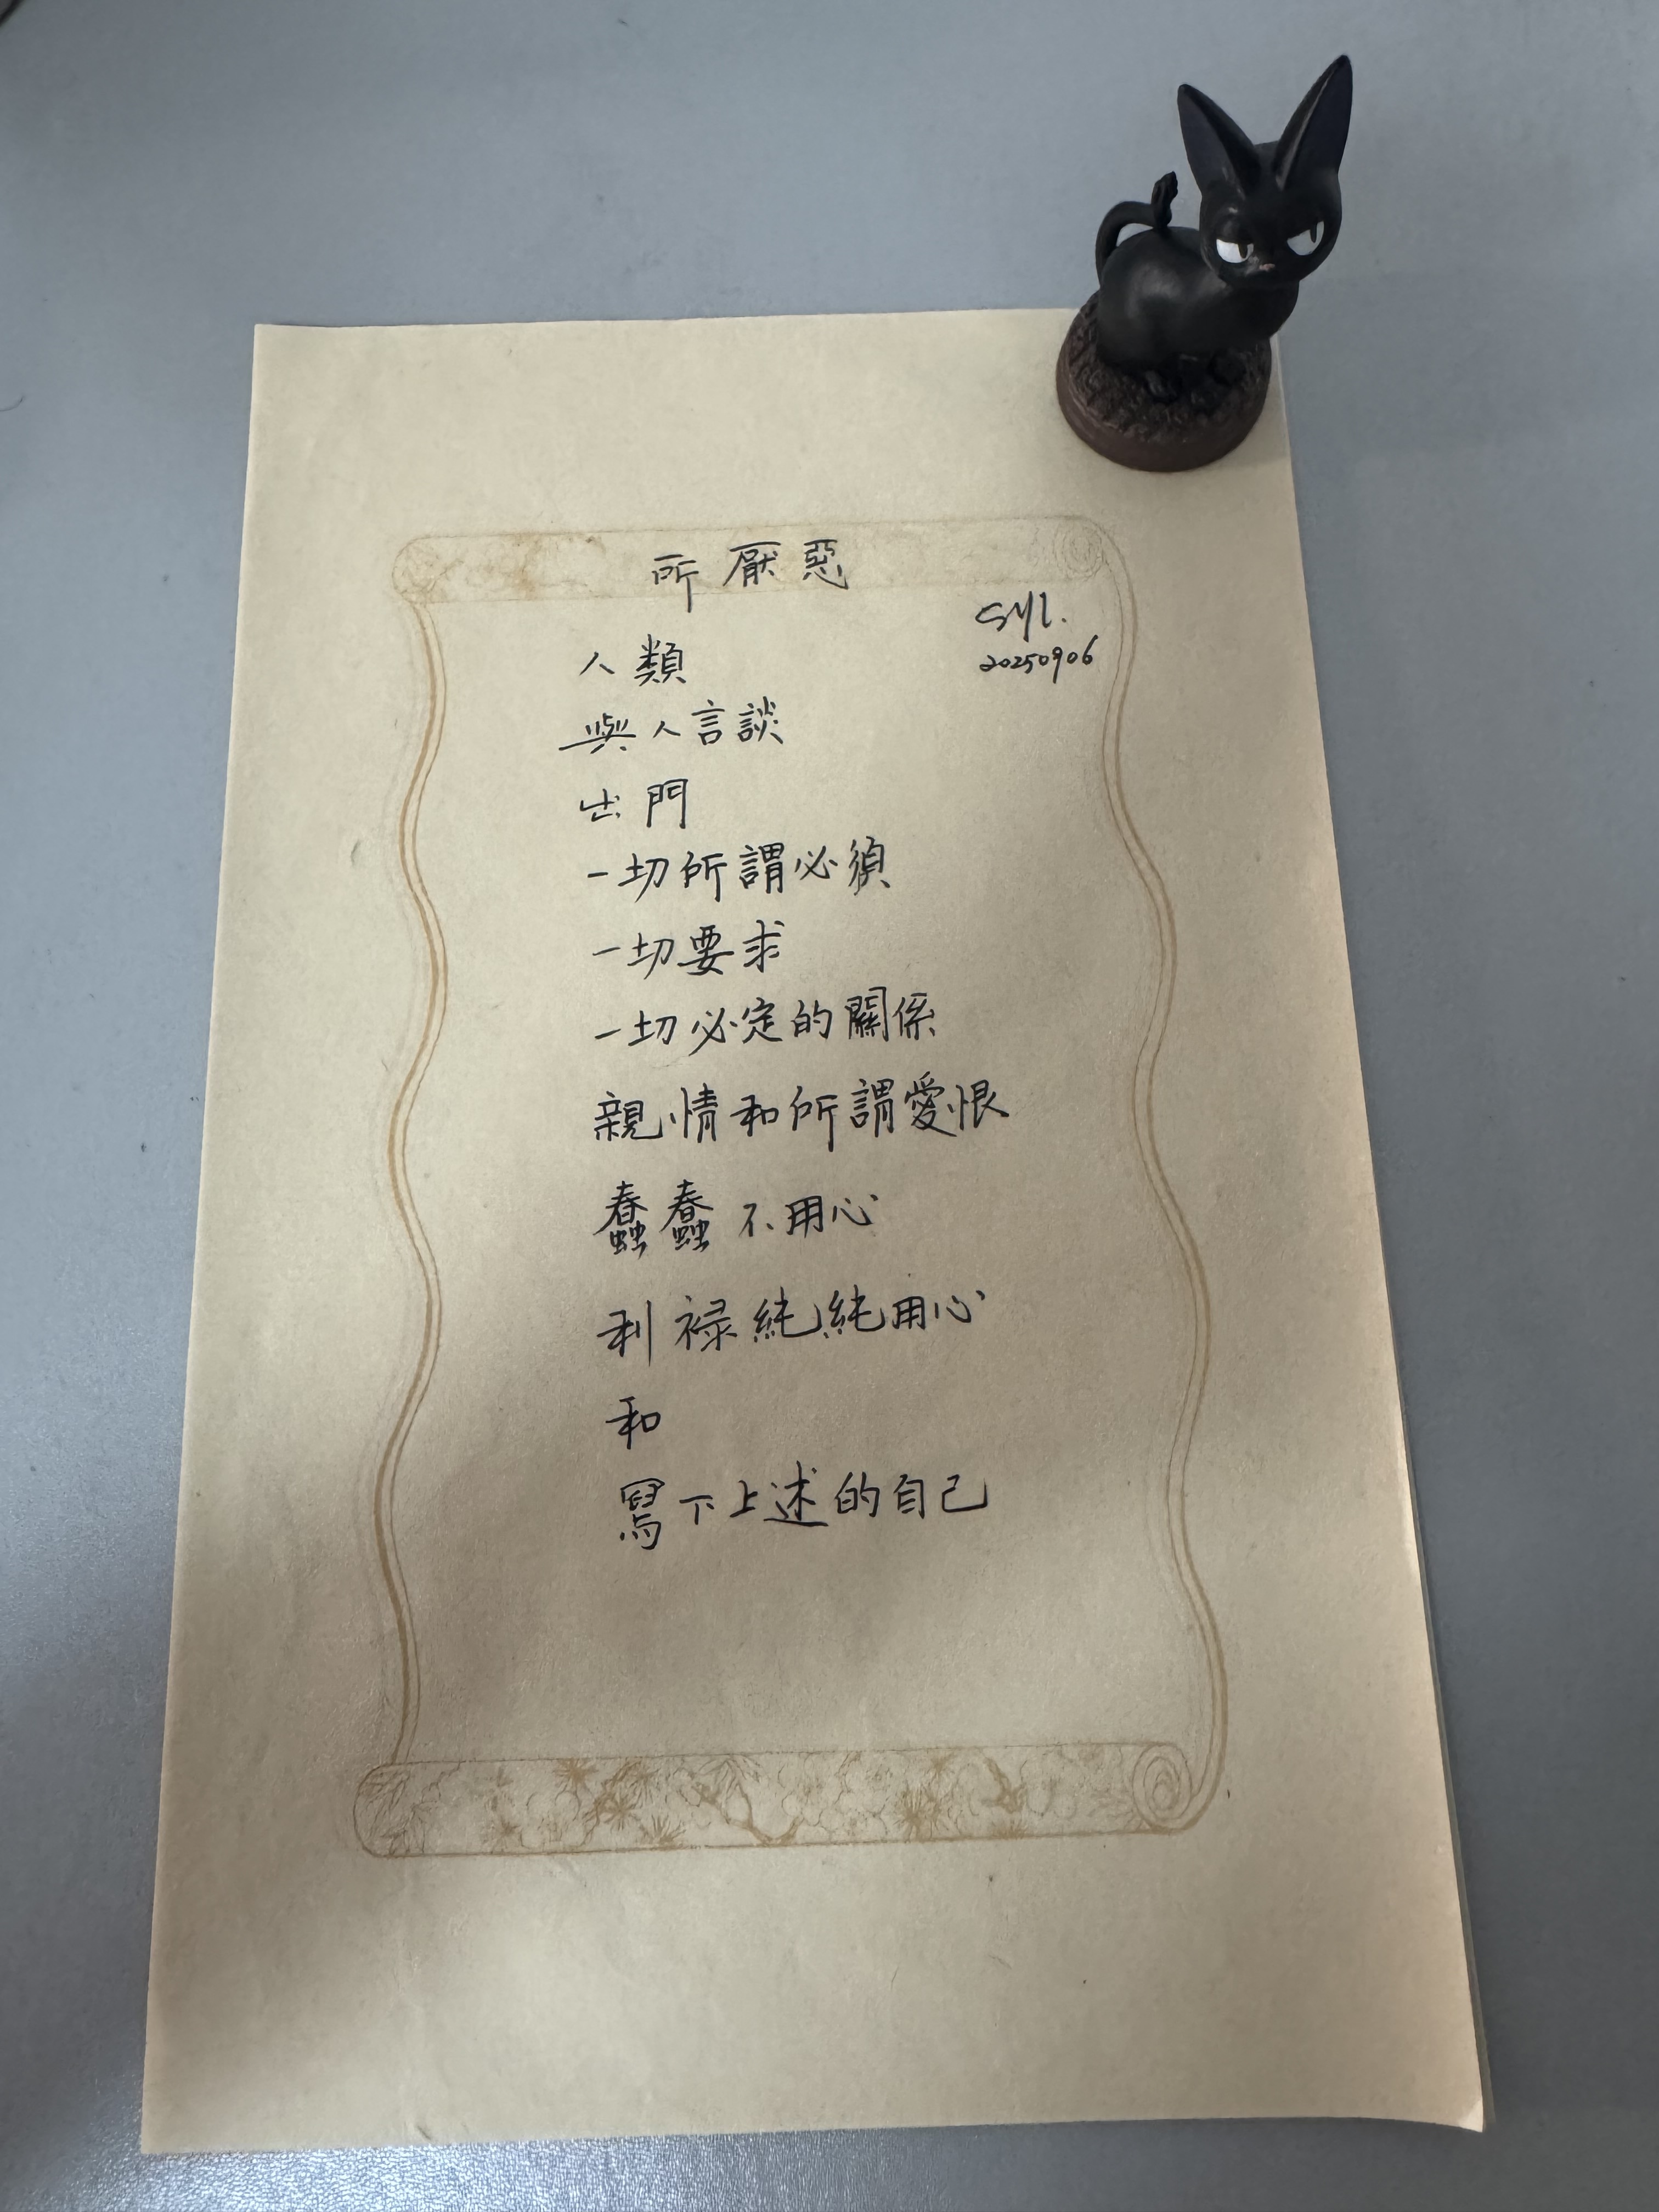 所厭惡
SYL.
20250906
人類
與人言談
出門
一切所謂必須
一切要求
一切必定的關係
親情和所謂愛恨
蠢蠢不用心
利祿純純用心
和
寫下上述的自己